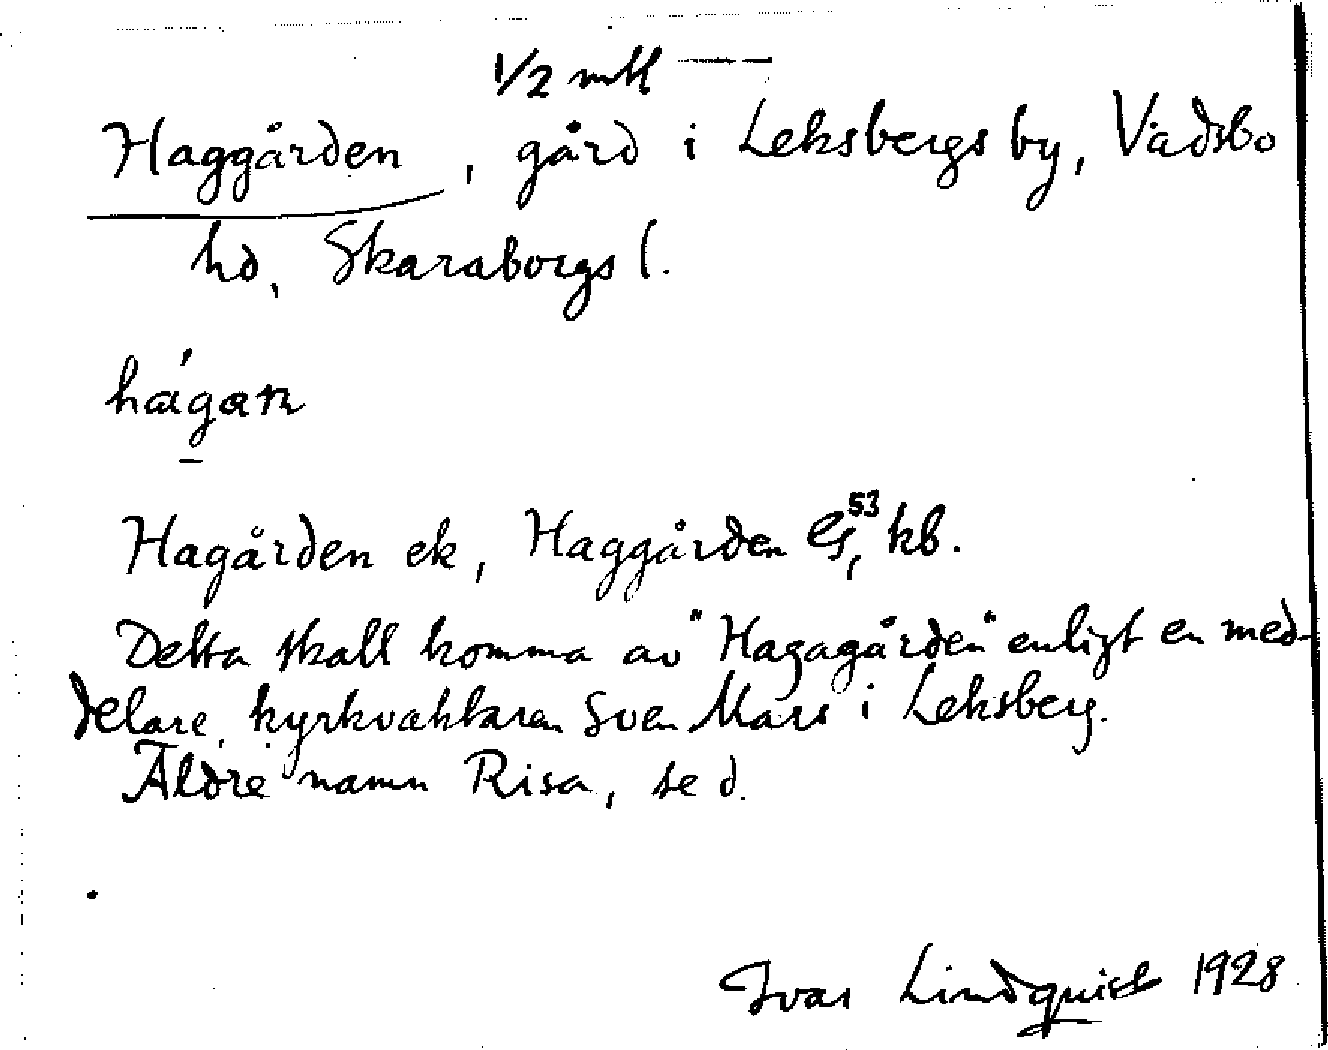 1/2 mtl —
Haggården, gård i Leksbergs by, Vadsbo
hd, Skaraborgs l.
hágan
Hagården ek, Haggården G53, kb.
Detta skall komma av "Hagagården" enligt en med-
delare, kyrkvaktaren Sven Mars i Leksberg.
Äldre namn Risa, se d.
Ivar Lindquist 1928